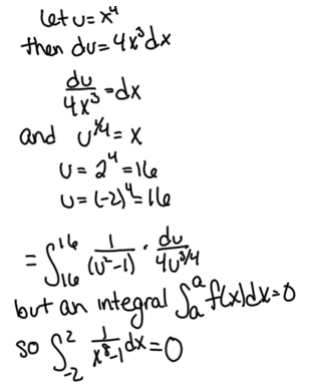 let u = x⁴
then du = 4x³dx
du/4x³ = dx
and u^¼ = x
u = 2⁴ = 16
u = (-2)⁴ = 16
= ∫₁₆¹⁶ 1/(u²-1) · du/4u^3/4
but an integral ∫ₐᵃ f(x)dx = 0
so ∫₋₂² 1/x⁸-1 dx = 0